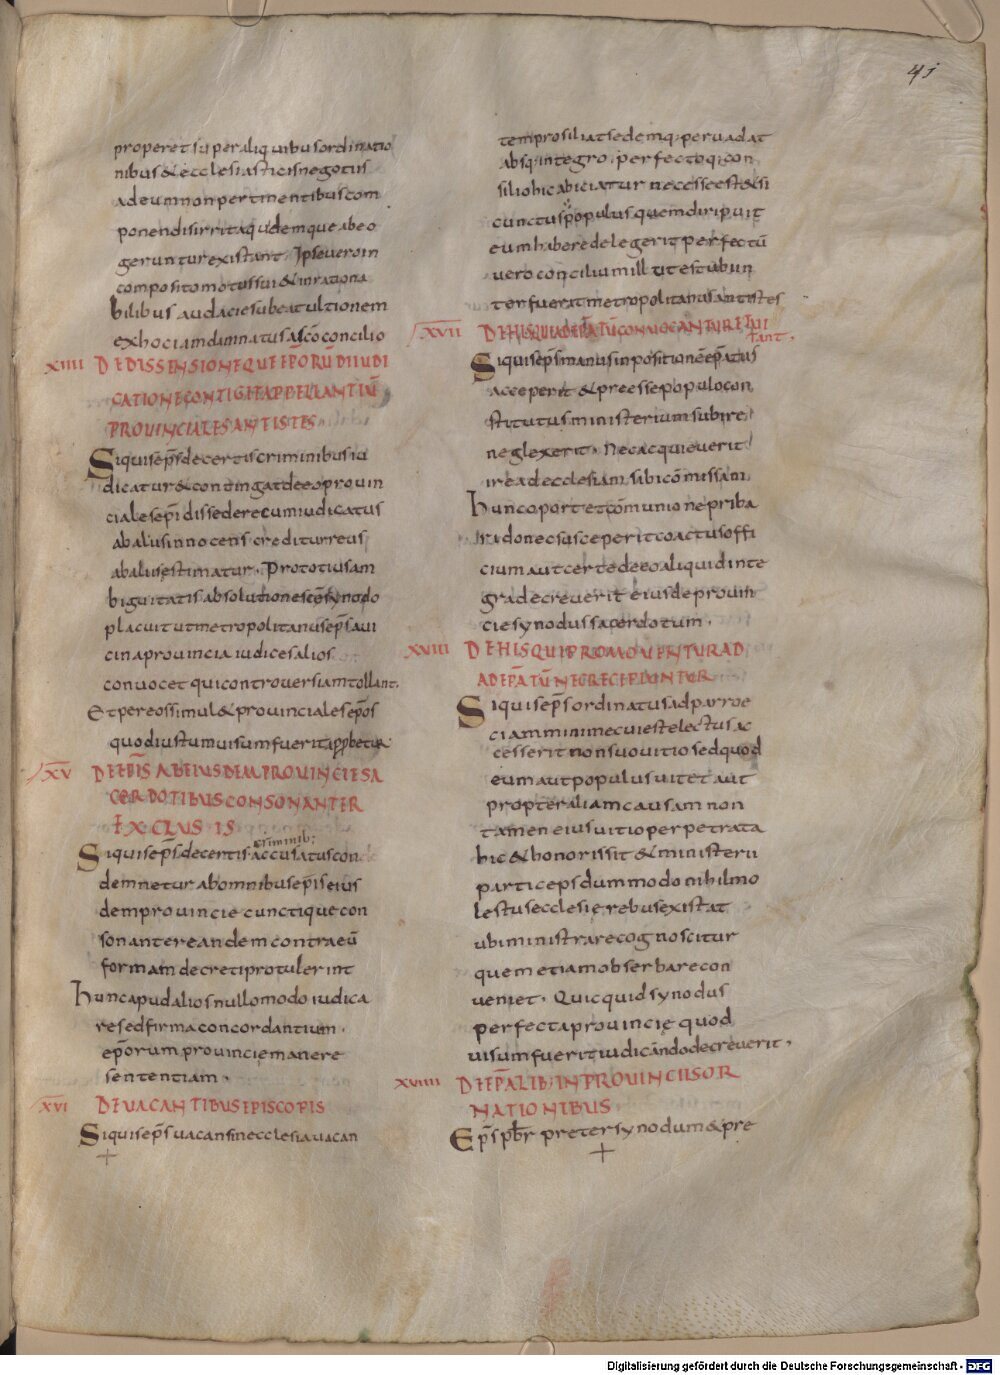 41
properet super aliquibus ordinatio
nibus & ecclesiasticis negotiis
ad eum non pertinentibus com
ponendis irrita quidem que ab eo
geruntur existant. Ipse vero in
compositi motus sui & inrationa
bilibus audacie subeat ultionem
ex hoc iam damnatus a sc̄o concilio
XIIII DE DISSENSIONE QUE EP̄ORUM DIIUDI
CATIONE CONTIGIT APPELLANTIŪ
PROVINCIALES ANTISTES
Siquis ep̄s de certis criminibus iu
dicatur & contingat de eo provin
ciales ep̄i dissedere cum iudicatus
ab aliis innocens creditur reus
ab aliis estimatur. Pro totius am
biguitatis absolutione sc̄e synodo
placuit ut metropolitanus ep̄s a vi
cina provincia iudices alios
convocet qui controversiam tollant.
Et per eos simul & provinciales ep̄os
quod iustum visum fuerit app̄betur
XV DE EP̄IS AB EIUSDEM PROVINCIE SA
CERDOTIBUS CONSONANTER
EXCLUSIS
criminib;
Siquis ep̄s de certis accusatus con
demnetur ab omnibus ep̄is eius
dem provincie cunctique con
sonanter eandem contra eū
formam decreti protulerint
hunc apud alios nullo modo iudica
re sed firma concordantium.
ep̄orum provincie manere
sententiam.
XVI DE VACANTIBUS EPISCOPIS
Siquis ep̄s vacans in ecclesia vacan
tem prosiliat sedemq; pervadat
absq; integro perfectoq; con
silio hic abiciatur necesse est & si
cunctus populus quem diripuit
eum habere delegerit perfectū
vero concilium illut est ubi in
terfuerit metropolitanus antistes
XVII DE HIS QUI AD EP̄ATŪ CONVOCANTUR ET VI
TANT.
Siquis ep̄s manus inpositionē ep̄atus
acceperit & preesse populo con
stitutus ministerium subire
neglexerit. Nec acquieverit
ire ad ecclesiam sibi cōmissam
hunc oportet cōmunione priba
ri donec susceperit coactus offi
cium aut certe de eo aliquid inte
gra decreverit eius de provin
cie synodus sacerdotum.
XVIII DE HIS QUI PROMOVENTUR AD
AD EP̄ATŪ NEC RECIPIUNTUR
Siquis ep̄s ordinatus ad parroe
ciam minime cui est electus ac
cesserit non suo vitio sed quod
eum aut populus vitet aut
propter aliam causam non
tamen eius vitio perpetrata
hic & honoris sit & ministerii
particeps dummodo nihil mo
lestus ecclesie rebus existat
ubi ministrare cognoscitur
quem etiam obserbare con
veniet. Quicquid synodus
perfecta provincie quod
visum fuerit iudicando decreverit.
XVIIII DE EP̄ALIB; IN PROVINCIIS OR
NATIONIBUS
Ep̄s pb̄r preter synodum & pre
Digitalisierung gefördert durch die Deutsche Forschungsgemeinschaft - DFG